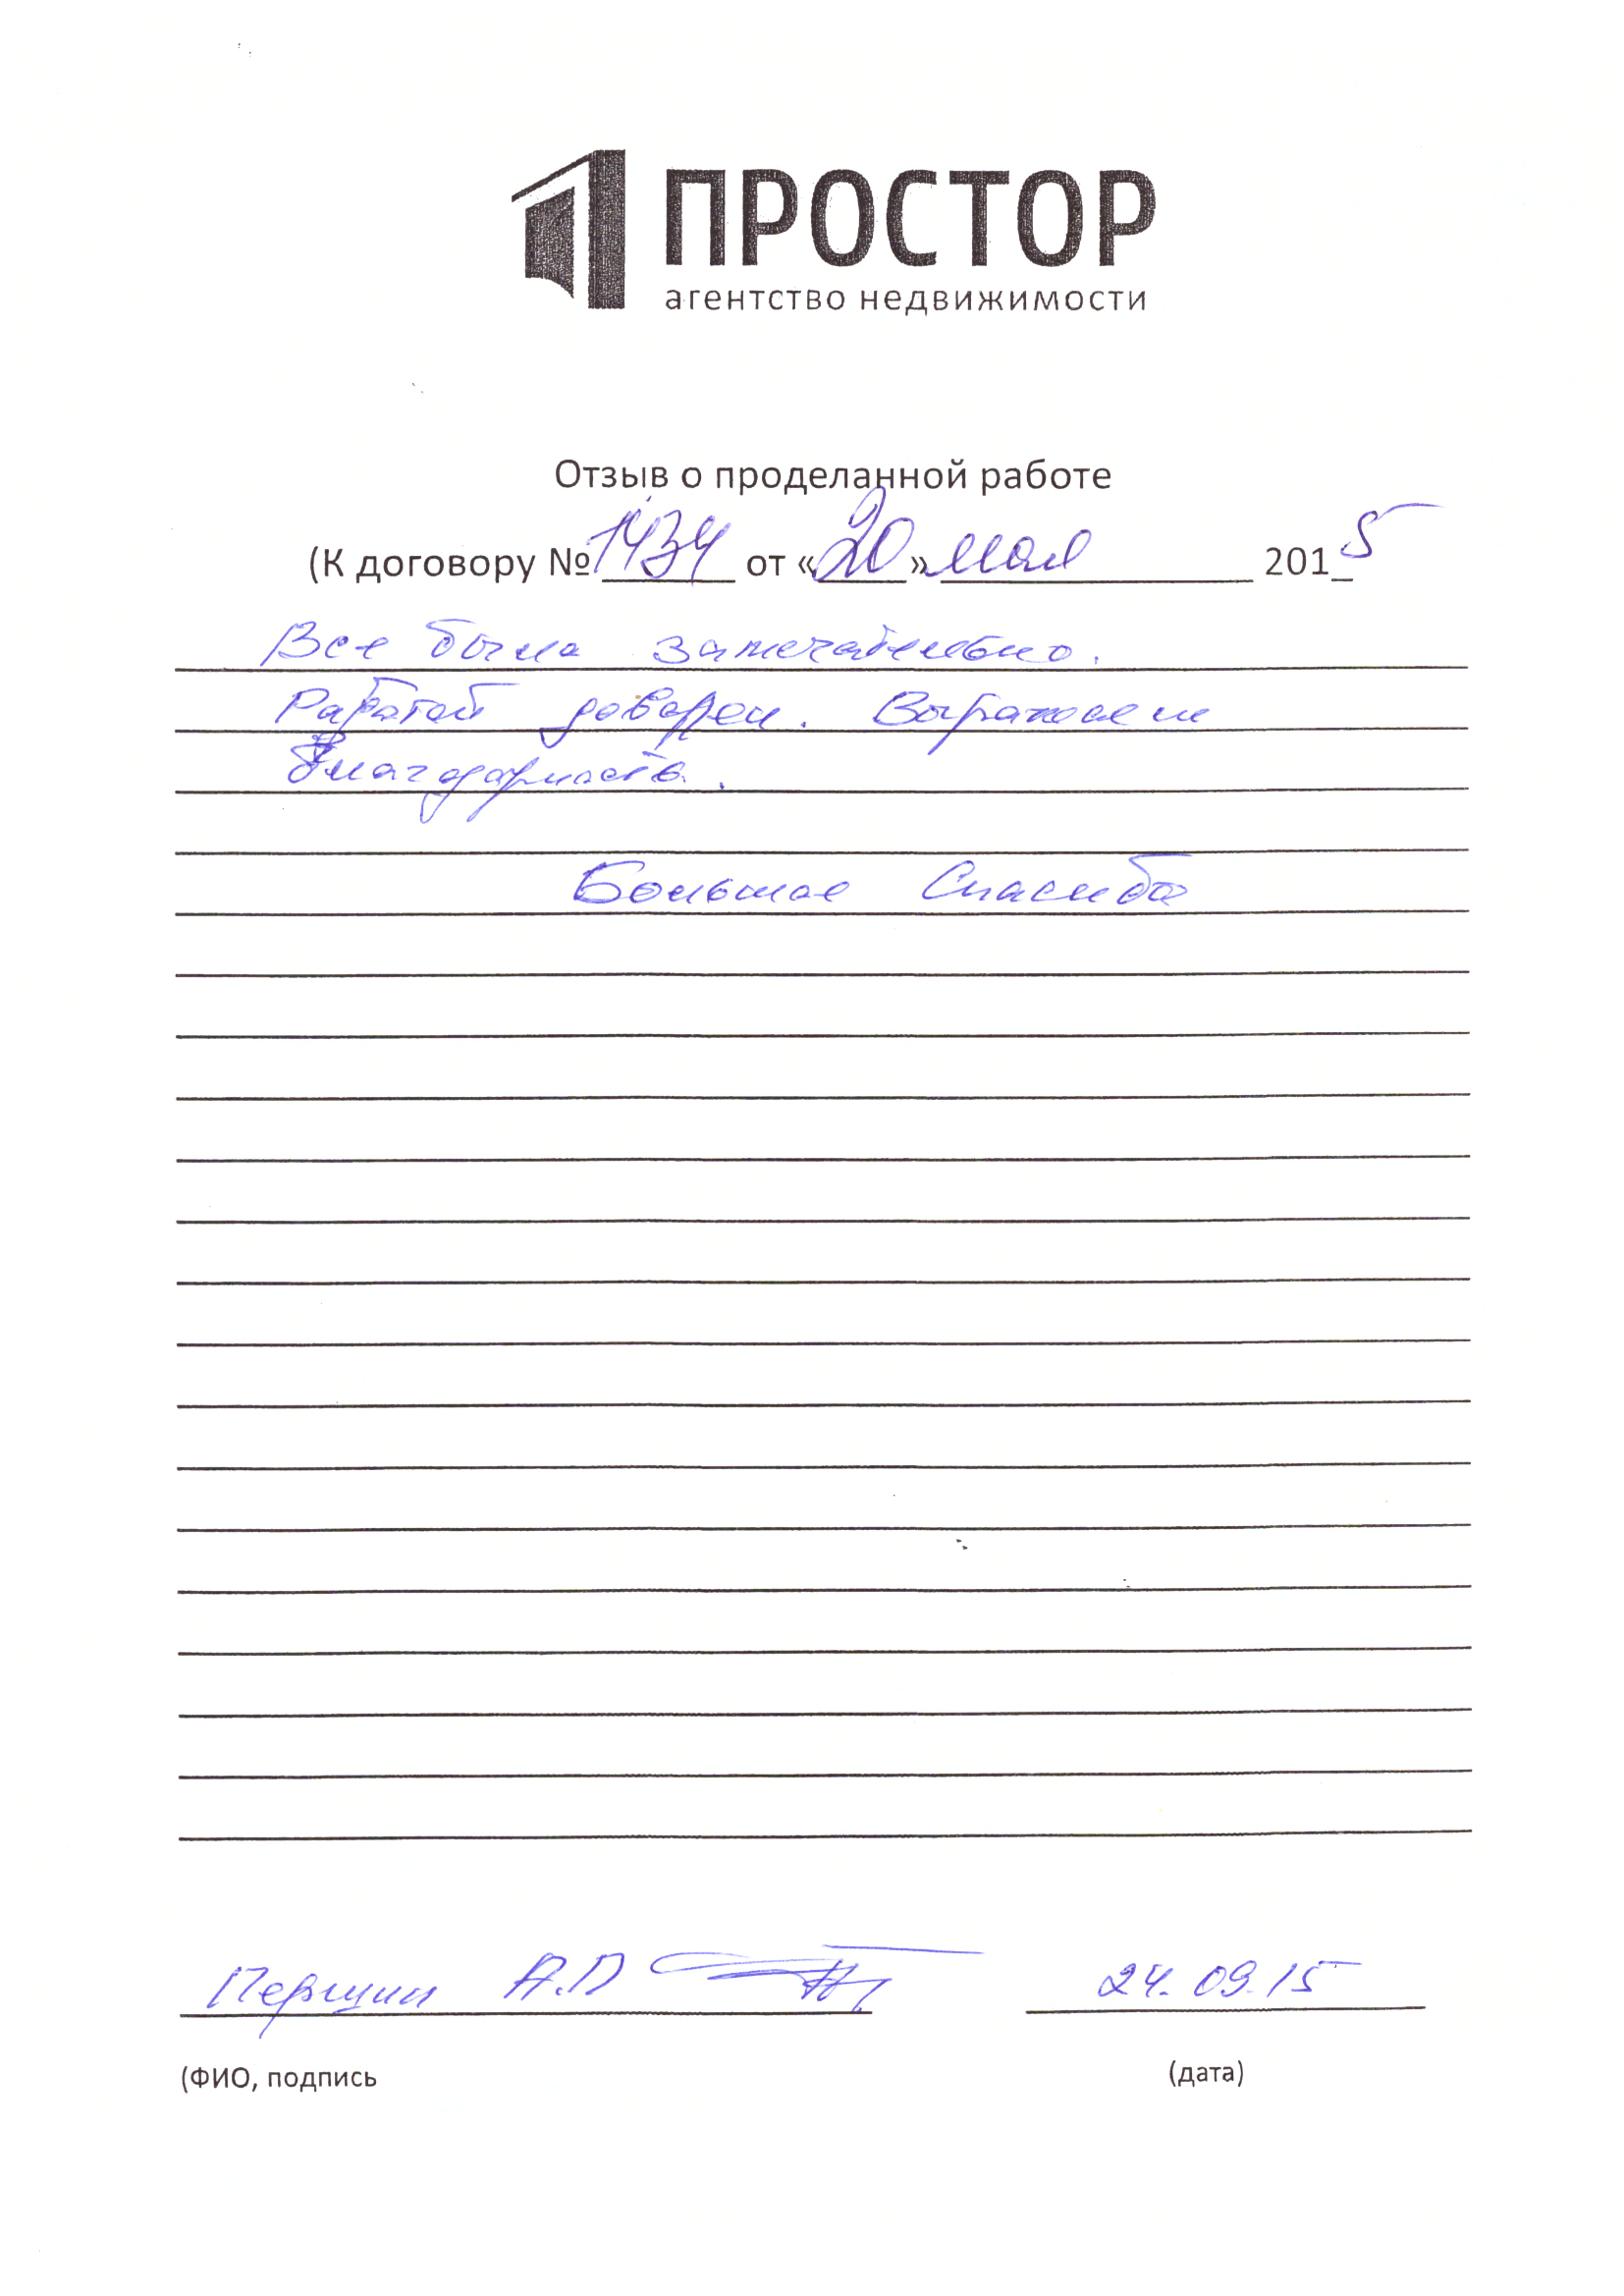 ПРОСТОР
агентство недвижимости
Отзыв о проделанной работе
(К договору № 1434 от «20» мая 2015
Все было замечательно.
Работой доволен. Выражаем
благодарность.
Большое Спасибо
Першин А.П
24.09.15
(ФИО, подпись
(дата)